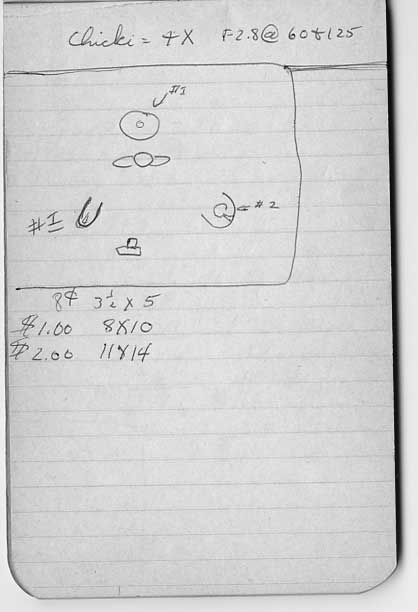 Chicki = 4X F2.8@ 60 & 125
#I
#2
#I
8¢ 3½ X 5
$1.00 8X10
$2.00 11X14